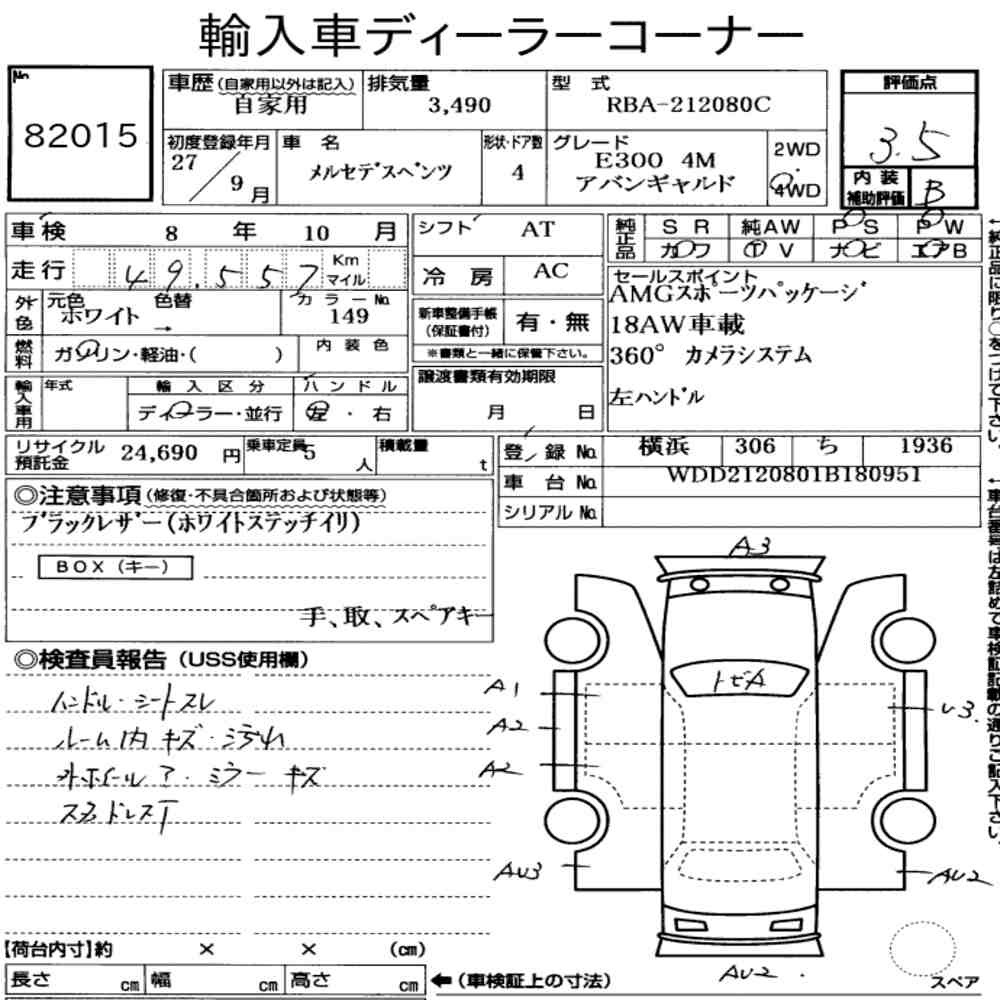 輸入車ディーラーコーナー
No.
82015
車歴(自家用以外は記入)
自家用
排気量
3,490
型 式
RBA-212080C
評価点
3.5
初度登録年月
27/9月
車 名
メルセデスベンツ
形状・ドア数
4
グレード
E300 4M
アバンギャルド
2WD
4WD
内装補助評価
B
車検 8 年 10 月
走行 49.557 Km マイル
シフト AT
冷 房 AC
純正品
SR 純AW PS PW
カワ TV ナビ エアB
外色
元色 色替
ホワイト →
カラーNo.
149
燃料
ガソリン・軽油・( )
内 装 色
新車整備手帳
(保証書付)
有・無
※書類と一緒に保管下さい。
セールスポイント
AMGスポーツパッケージ
18AW車載
360° カメラシステム
左ハンドル
輸入車用
年式
輸 入 区 分
ハ ン ド ル
ディーラー・並行
左 ・ 右
譲渡書類有効期限
月 日
リサイクル預託金
24,690 円
乗車定員 5 人
積載量 t
登 録 No. 横浜 306 ち 1936
車 台 No. WDD2120801B180951
シリアル No.
◎注意事項(修復・不具合箇所および状態等)
ブラックレザー(ホワイトステッチイリ)
BOX(キー)
手、取、スペアキー
◎検査員報告(USS使用欄)
ハンドル・シートスレ
ルーム内キズ・汚れ
外ホイールア・ミラーキズ
スタドレスT
A3
トビA
A1
A2
A2
AU3
U3.
AU2
AU2.
スペア
【荷台内寸】約 × × (cm)
長さ cm 幅 cm 高さ cm
←(車検証上の寸法)
←純正品に限り○をつけて下さい。
←車台番号は左詰めで車検証記載の通りご記入下さい。